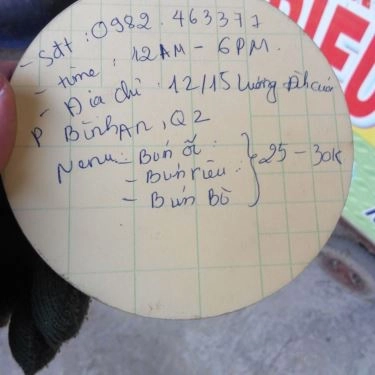 - Sđt : 0982. 463377
- time : 12AM - 6PM.
- Địa chỉ : 12/15 Lương Đình Của
P Bình An, Q2
Menu: - Bún ốc
- Bún riêu
- Bún Bò
25 - 30k
RIÊU